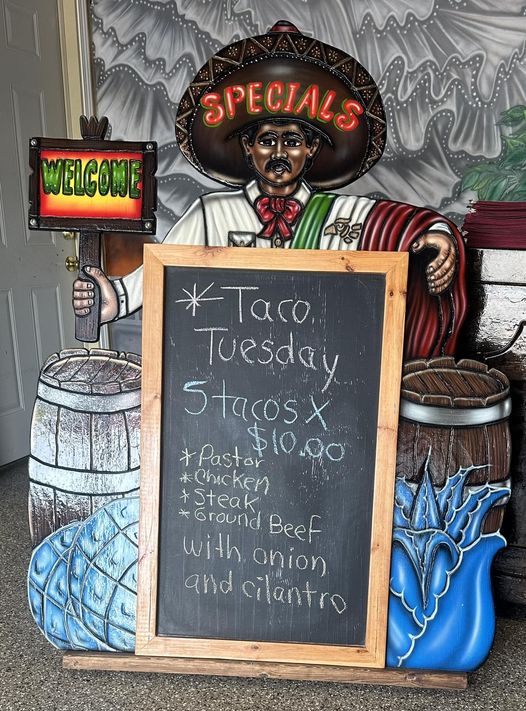 SPECIALS
WELCOME
* Taco
Tuesday
5 tacos X
$10.00
* Pastor
* Chicken
* Steak
* Ground Beef
with onion
and cilantro